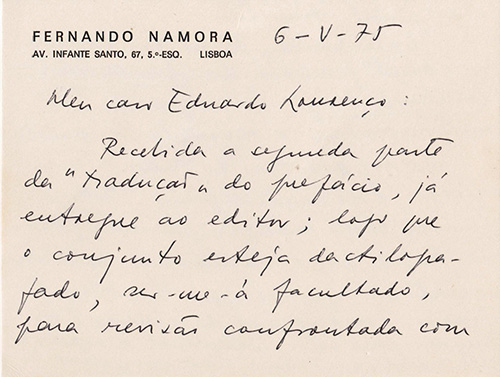 FERNANDO NAMORA
AV. INFANTE SANTO, 67, 5.º-ESQ. LISBOA
6-V-75
Meu caro Eduardo Lourenço:
Recebida a segunda parte
da "tradução" do prefácio, já
entregue ao editor; logo que
o conjunto esteja dactilogra-
fado, ser-me-á facultado,
para revisão confrontada com